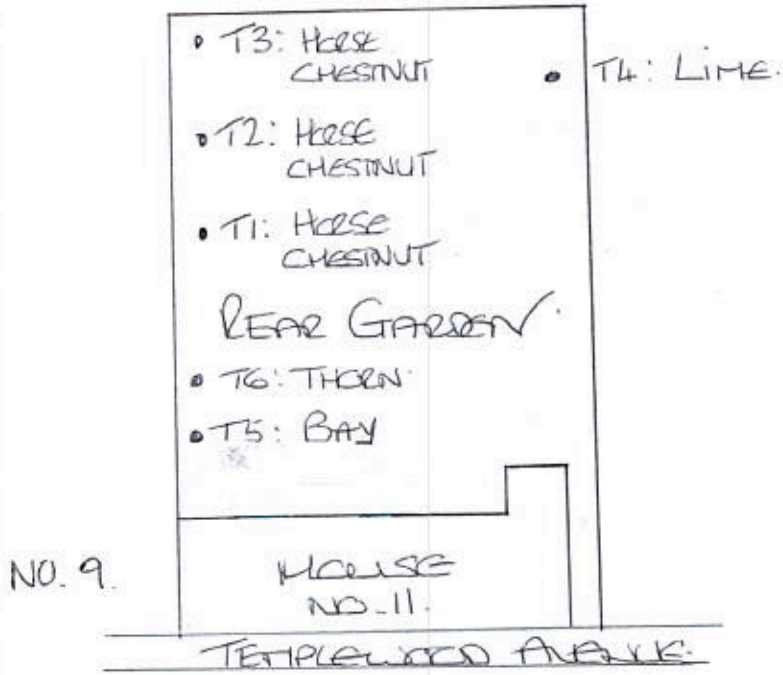 T3: HORSE
CHESTNUT
T4: LIME.
T2: HORSE
CHESTNUT
T1: HORSE
CHESTNUT
REAR GARDEN.
T6: THORN
T5: BAY
NO. 9.
HOUSE
NO. 11.
TEMPLEWOOD AVENUE.